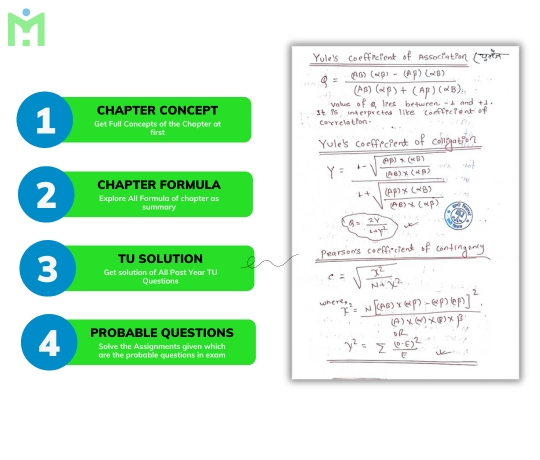 1
CHAPTER CONCEPT
Get Full Concepts of the Chapter at
first
2
CHAPTER FORMULA
Explore All Formula of chapter as
summary
3
TU SOLUTION
Get solution of All Past Year TU
Questions
4
PROBABLE QUESTIONS
Solve the Assignments given which
are the probable questions in exam
Yule's coefficient of Association
Q = (AB) (αβ) - (Aβ) (αB)
(AB) (αβ) + (Aβ) (αB)
value of Q lies between -1 and +1.
It is interpreted like coefficient of
correlation.
Yule's coefficient of colligation
Y = 1 - √ (Aβ) x (αB)
(AB) x (αβ)
1 + √ (Aβ) x (αB)
(AB) x (αβ)
Q = 2Y
1+Y²
Pearson's coefficient of contingency
c = √ χ²
N + χ²
where, χ² = N [(AB) x (αβ) - (αB) (Aβ)]²
(A) x (α) x (B) x β
OR
χ² = Σ (O-E)²
E